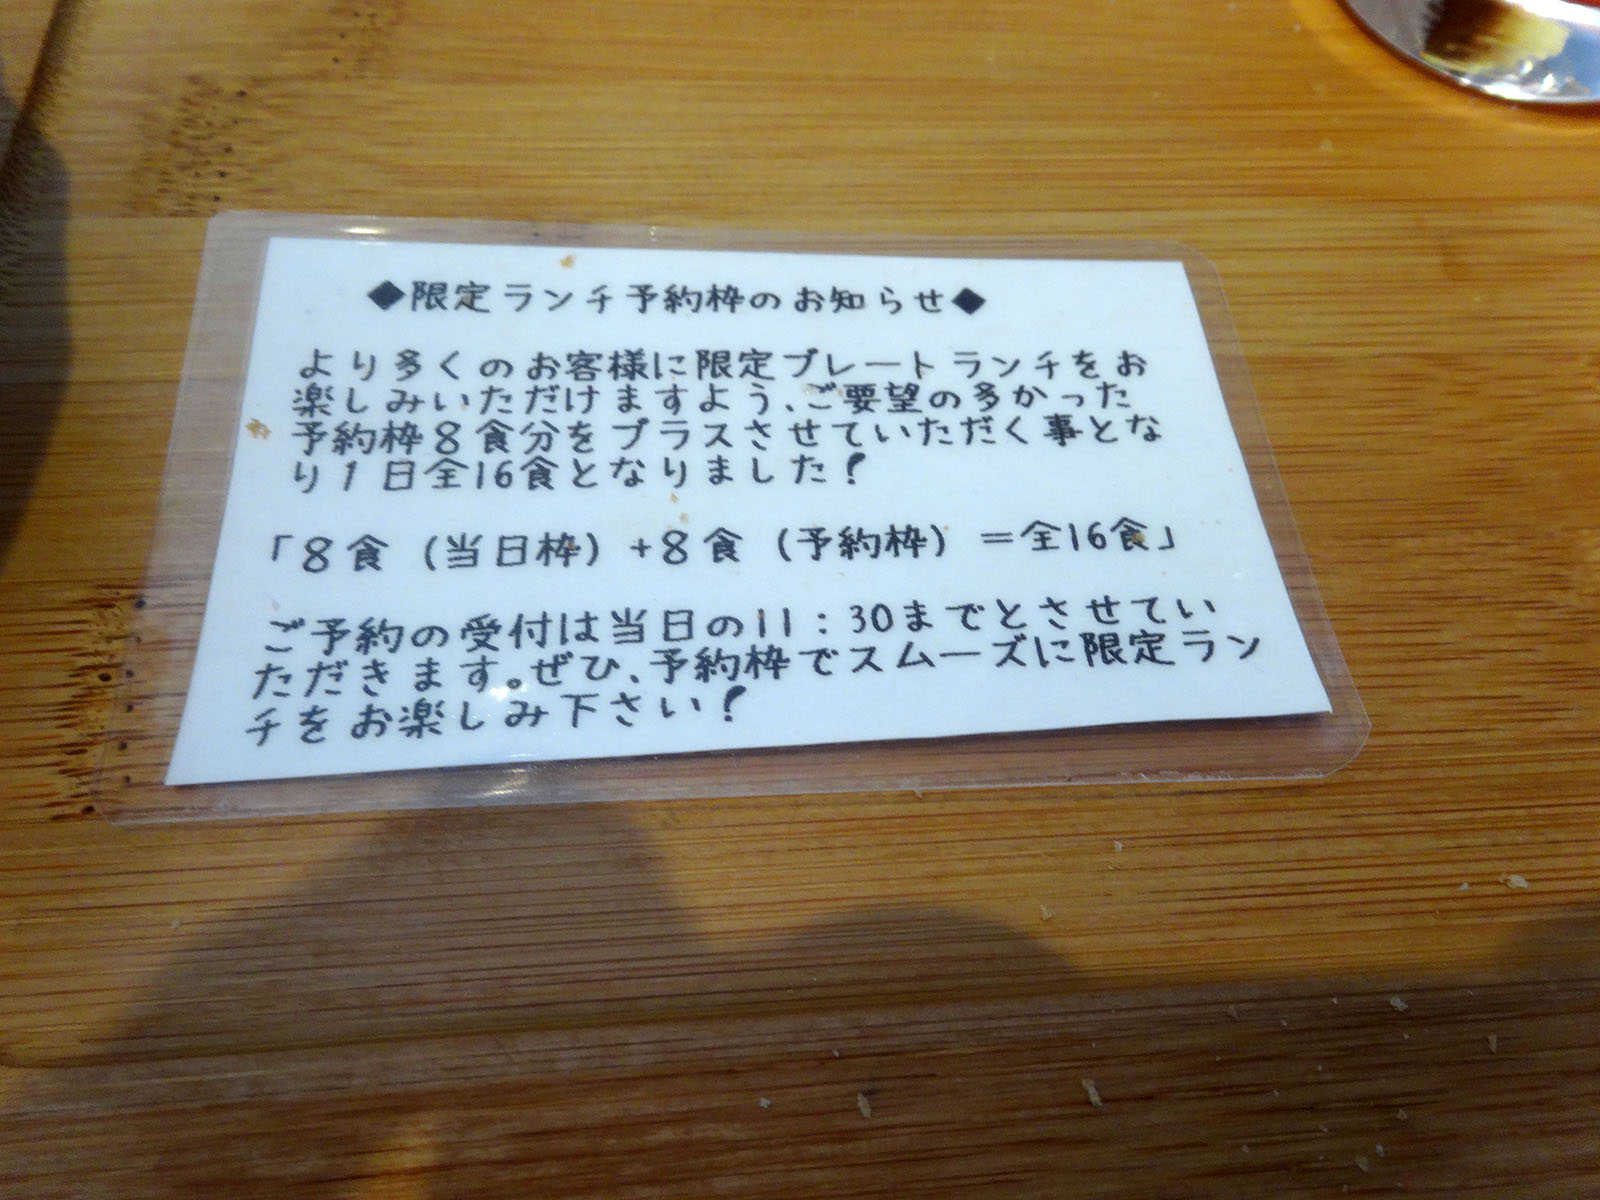 ◆限定ランチ予約枠のお知らせ◆
より多くのお客様に限定プレートランチをお
楽しみいただけますよう、ご要望の多かった
予約枠8食分をプラスさせていただく事とな
り1日全16食となりました!
「8食（当日枠）+8食（予約枠）=全16食」
ご予約の受付は当日の11：30までとさせてい
ただきます。ぜひ、予約枠でスムーズに限定ラン
チをお楽しみ下さい!